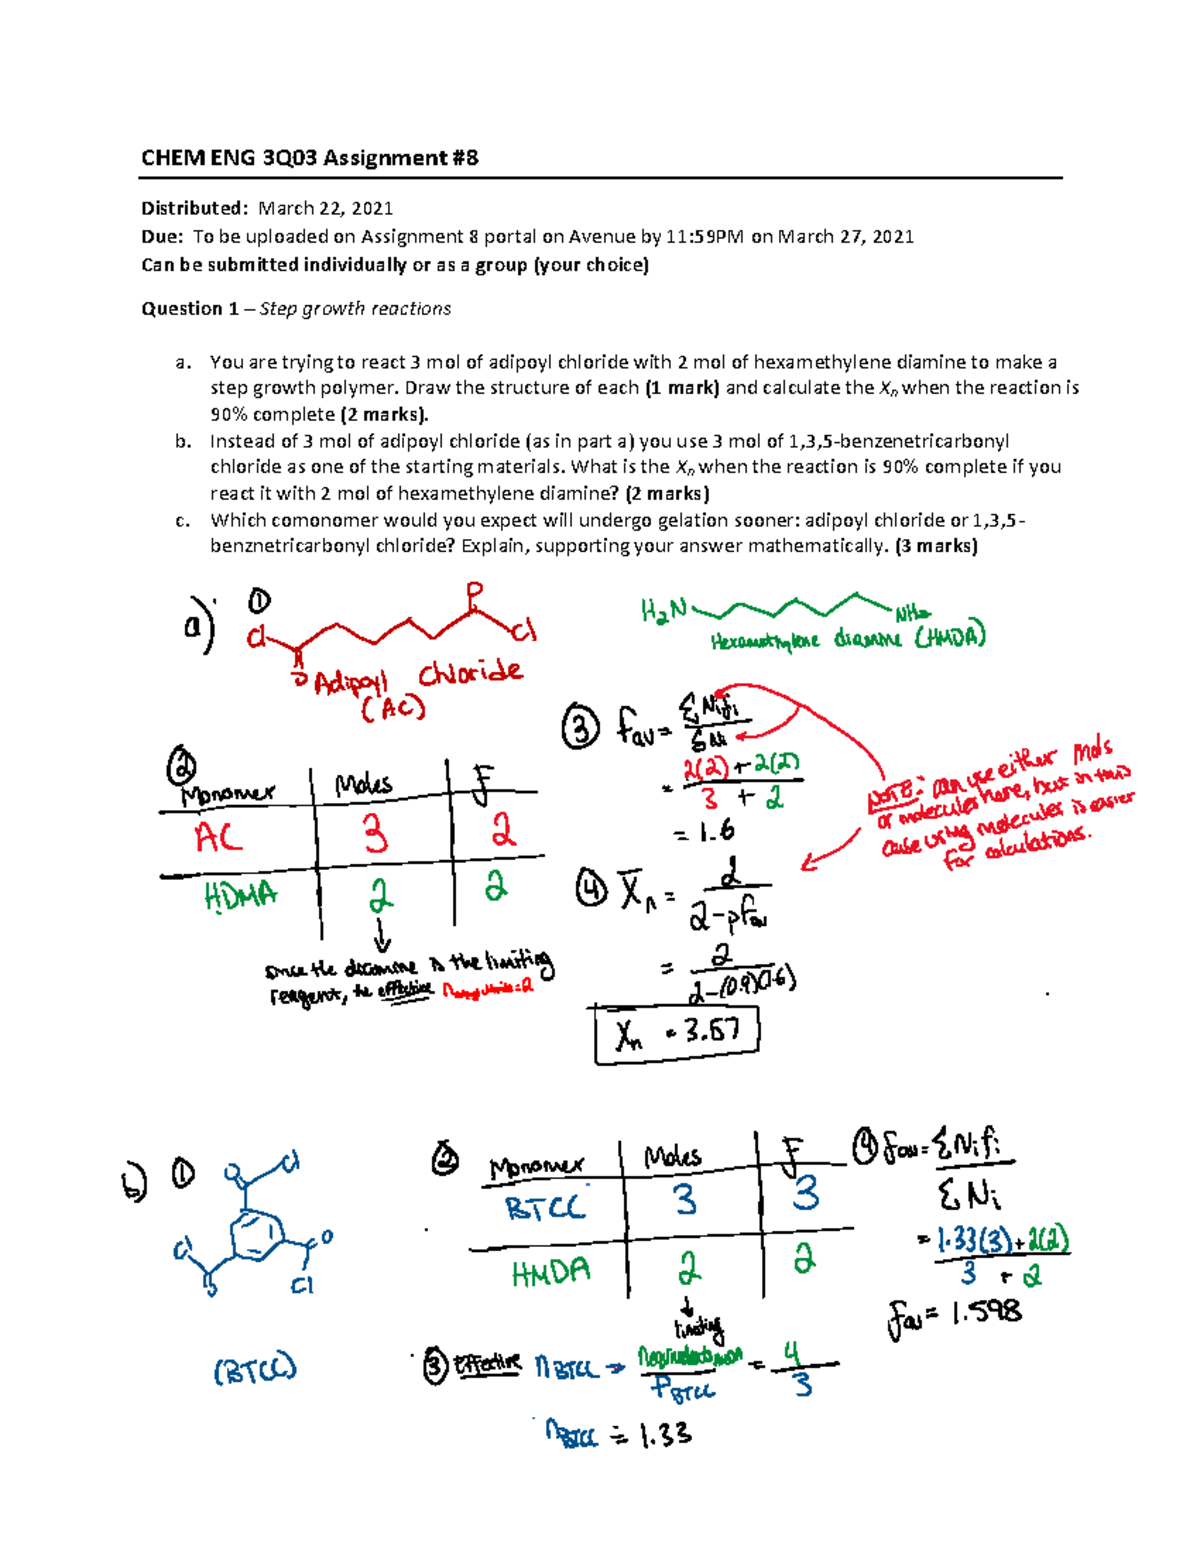 CHEM ENG 3Q03 Assignment #8
Distributed: March 22, 2021
Due: To be uploaded on Assignment 8 portal on Avenue by 11:59PM on March 27, 2021
Can be submitted individually or as a group (your choice)
Question 1 – Step growth reactions
a. You are trying to react 3 mol of adipoyl chloride with 2 mol of hexamethylene diamine to make a
step growth polymer. Draw the structure of each (1 mark) and calculate the Xn when the reaction is
90% complete (2 marks).
b. Instead of 3 mol of adipoyl chloride (as in part a) you use 3 mol of 1,3,5-benzenetricarbonyl
chloride as one of the starting materials. What is the Xn when the reaction is 90% complete if you
react it with 2 mol of hexamethylene diamine? (2 marks)
c. Which comonomer would you expect will undergo gelation sooner: adipoyl chloride or 1,3,5-
benznetricarbonyl chloride? Explain, supporting your answer mathematically. (3 marks)
a) ①
Cl
Cl
O
Adipoyl Chloride
(AC)
H2N
NH2
Hexamethylene diamine (HMDA)
②
Monomer Moles F
AC 3 2
HDMA 2 2
Since the diamine is the limiting
reagent, the effective
③ fav = ΣNifi
ΣNi
= 2(2) + 2(2)
3 + 2
= 1.6
NOTE: can use either mols
or molecules here, but in this
case using molecules is easier
for calculations.
④ X̄n = 2
2-pfav
= 2
2-(0.9)(1.6)
X̄n = 3.57
b) ①
O
Cl
Cl
O
O
Cl
(BTCC)
②
Monomer Moles F
BTCC 3 3
HMDA 2 2
limiting
③ Effective nBTCC → = 4
FBTCC 3
nBTCC ≐ 1.33
④ fav = ΣNifi
ΣNi
= 1.33(3)+2(2)
3 + 2
fav = 1.598